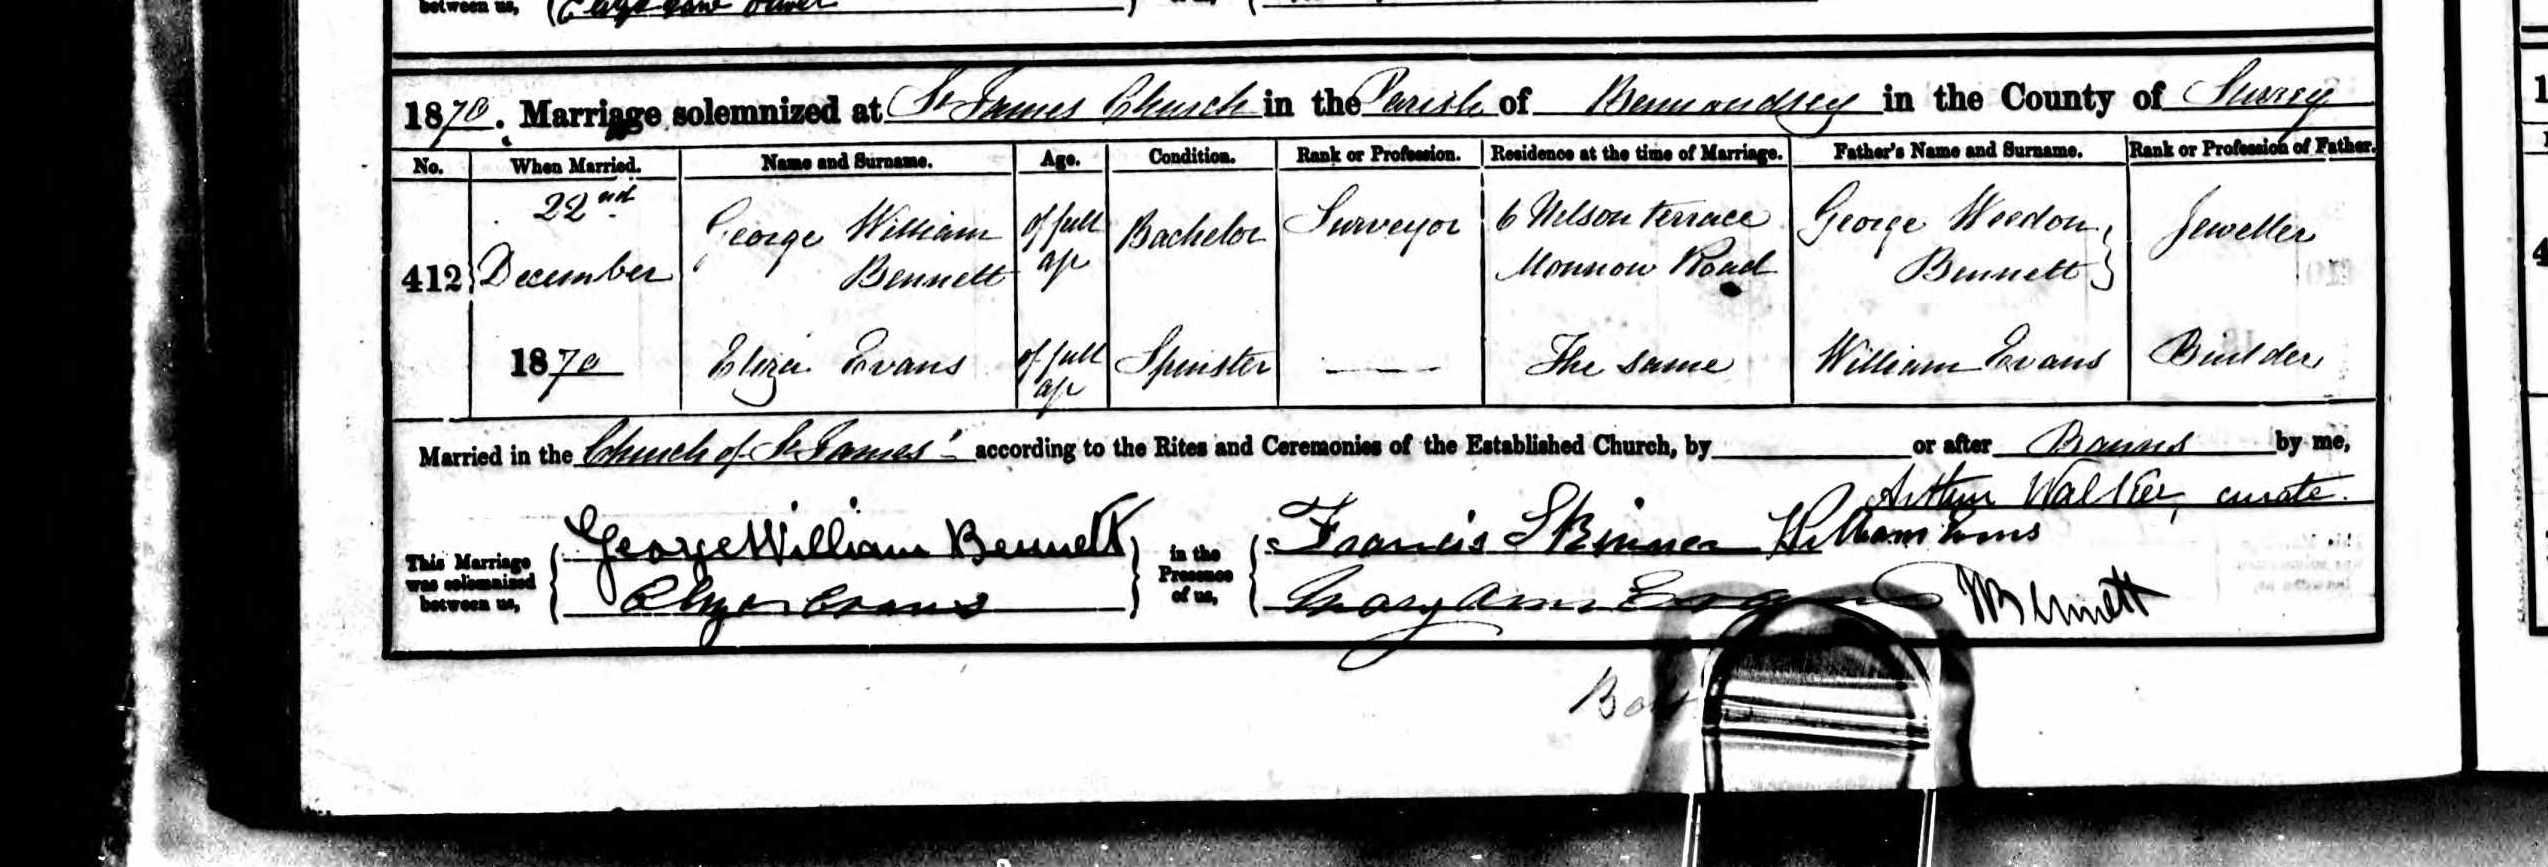 between us,
1870. Marriage solemnized at St James Church in the Parish of Bermondsey in the County of Surrey
No. When Married. Name and Surname. Age. Condition. Rank or Profession. Residence at the time of Marriage. Father's Name and Surname. Rank or Profession of Father.
412 22nd December 1870 George William Bennett of full age Bachelor Surveyor 6 Nelson terrace Monnow Road George Weedon Bennett Jeweller
Eliza Evans of full age Spinster The same William Evans Builder
Married in the Church of St James' according to the Rites and Ceremonies of the Established Church, by or after Banns by me,
Arthur Walker, curate.
This Marriage was solemnized between us, George William Bennett Eliza Evans in the Presence of us, Francis Skinner William Evans
Mary Ann W Bennett